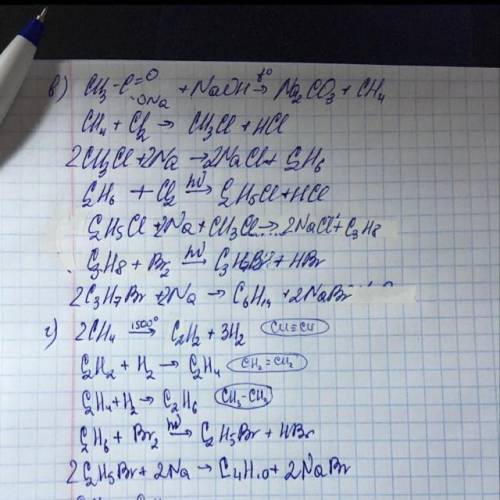 в) CH₃-C=O + NaOH t°→ Na₂CO₃ + CH₄
ONa
CH₄ + Cl₂ → CH₃Cl + HCl
2CH₃Cl + 2Na → 2NaCl + C₂H₆
C₂H₆ + Cl₂ hν→ C₂H₅Cl + HCl
C₂H₅Cl + 2Na + CH₃Cl → 2NaCl + C₃H₈
C₃H₈ + Br₂ hν→ C₃H₇Br + HBr
2C₃H₇Br + 2Na → C₆H₁₄ + 2NaBr
г) 2CH₄ 1500°→ C₂H₂ + 3H₂ CH≡CH
C₂H₂ + H₂ → C₂H₄ CH₂=CH₂
C₂H₄ + H₂ → C₂H₆ CH₃-CH₃
C₂H₆ + Br₂ hν→ C₂H₅Br + HBr
2C₂H₅Br + 2Na → C₄H₁₀ + 2NaBr